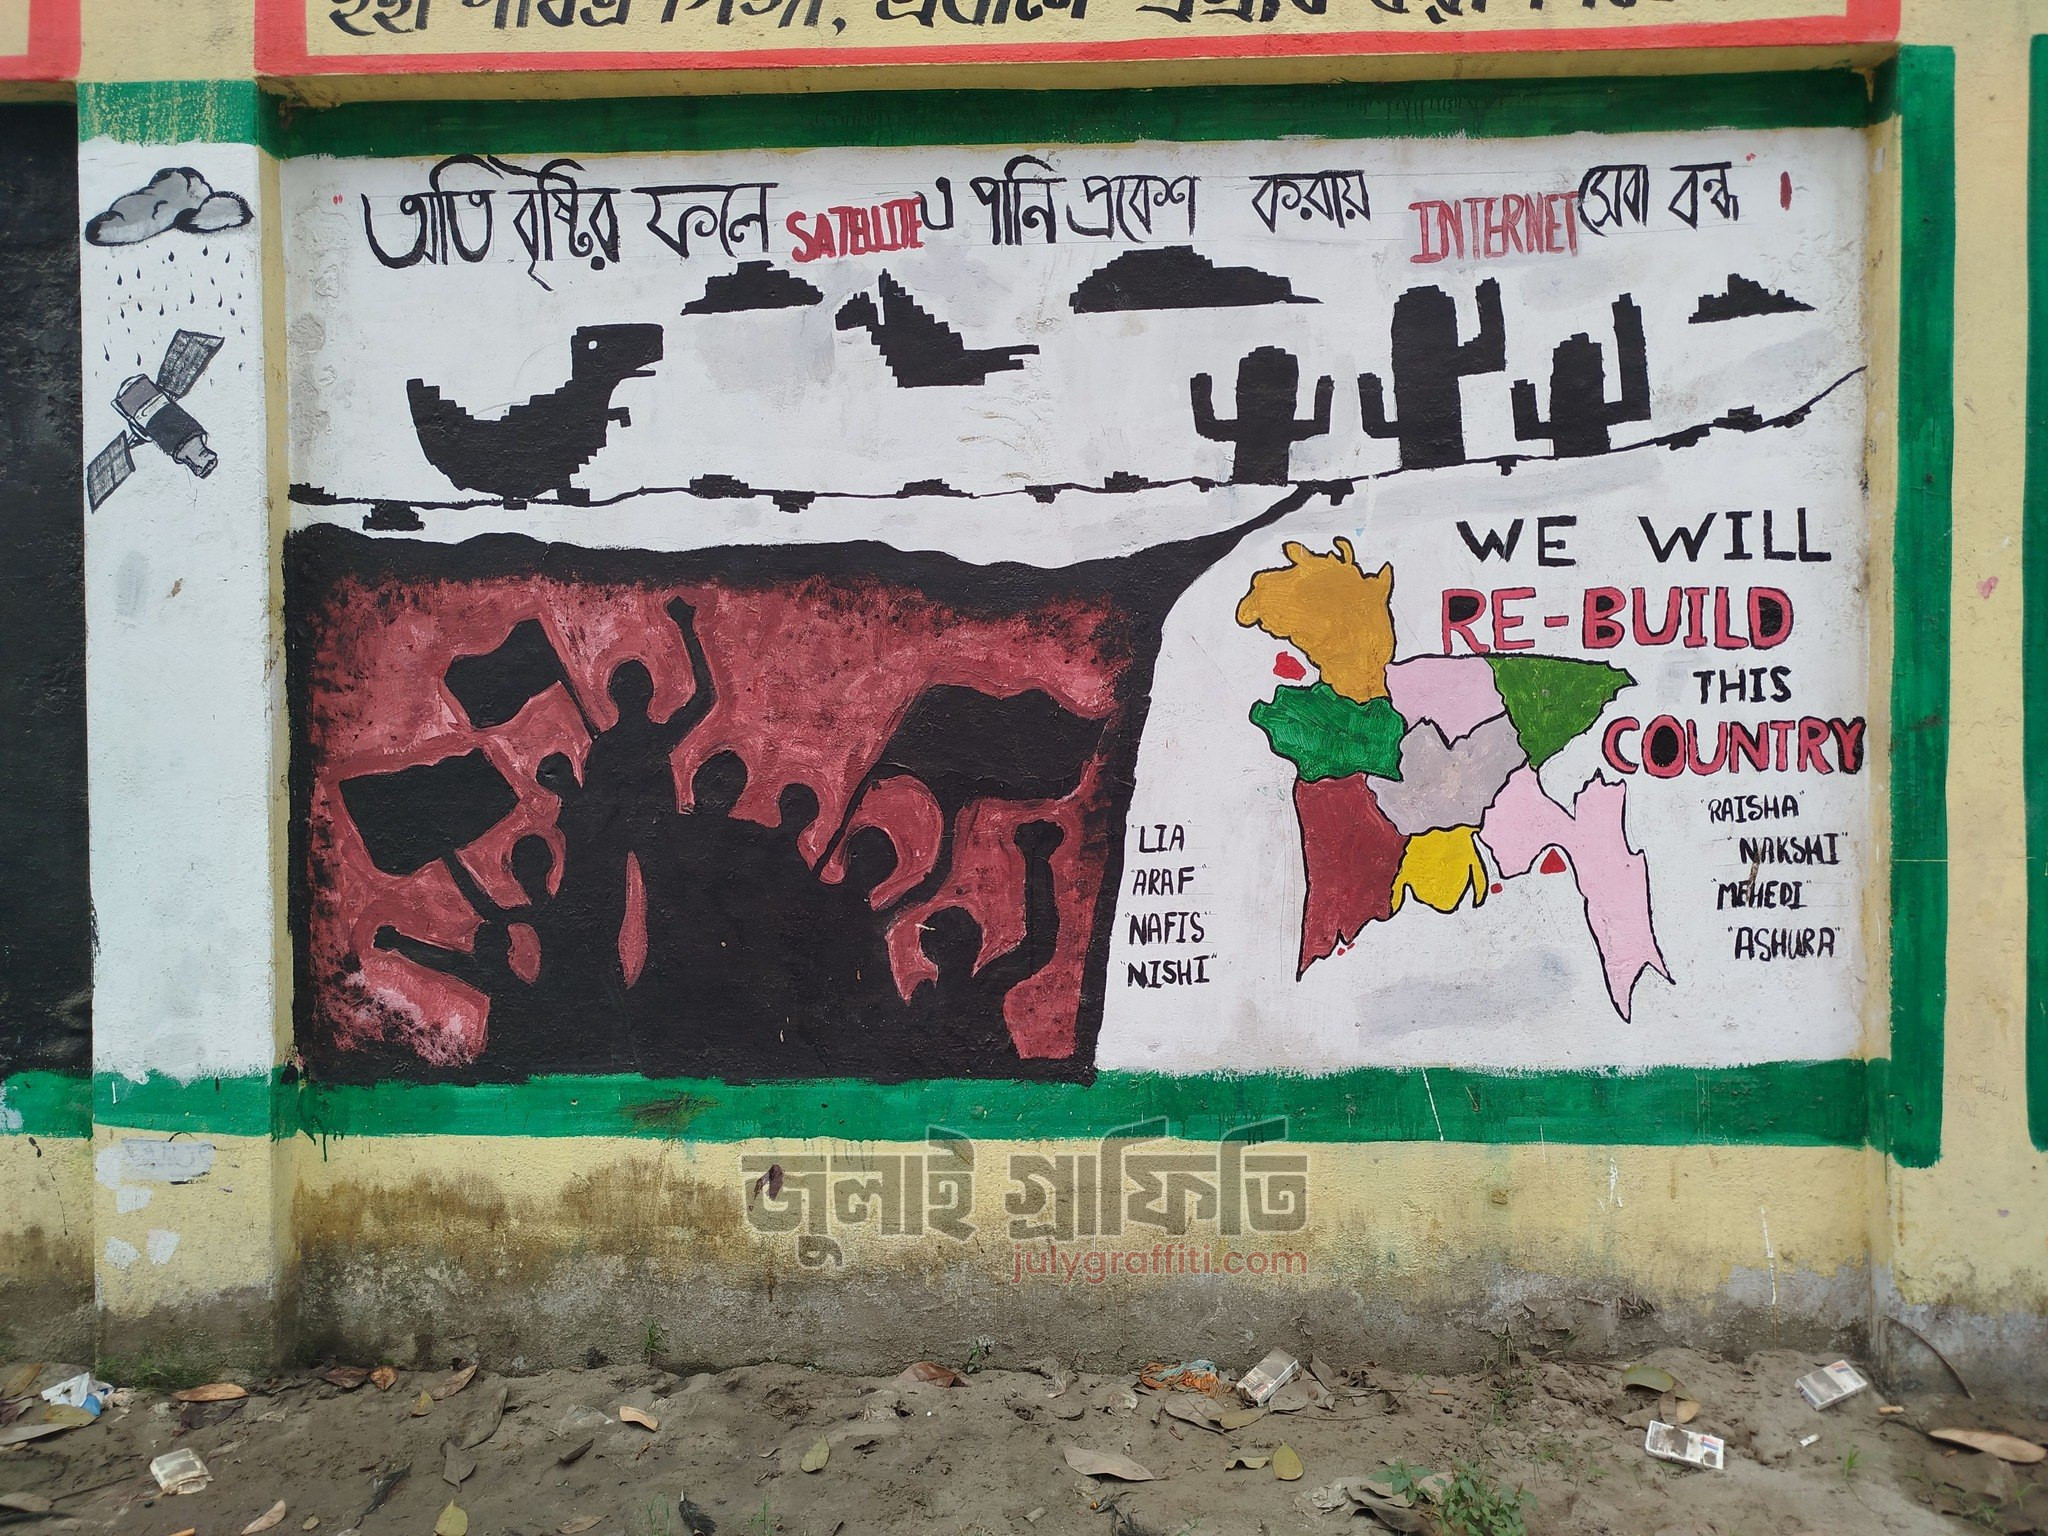 ইহা পবিত্র
"অতি বৃষ্টির ফলে SATELLITE এ পানি প্রবেশ করায় INTERNET সেবা বন্ধ"।
WE WILL
RE-BUILD
THIS
COUNTRY
"LIA"
"ARAF"
"NAFIS"
"NISHI"
"RAISHA"
"NAKSHI"
"MEHEDI"
"ASHURA"
জুলাই গ্রাফিতি
julygraffiti.com